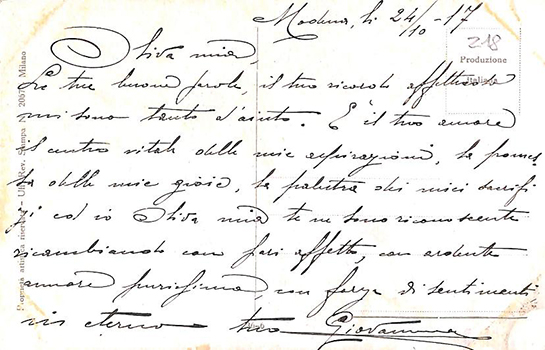 Modena, li 24/10 - 17
218
Produzione
Italiana
Oliva mia,
Le tue buone parole, il tuo ricordo affettuoso
mi sono tanto d'aiuto. È il tuo amore
il centro vitale delle mie aspirazioni, la promes
sa delle mie gioie, la palestra dei miei sacrifi
zi ed io Oliva mia te ne sono riconoscente
ricambiando con pari affetto, con ardente
amore purissimo, con forza di sentimenti
in eterno tuo Giovanni
Proprietà artistica riservata - Uff. Rev. Stampa N. 2067 Milano